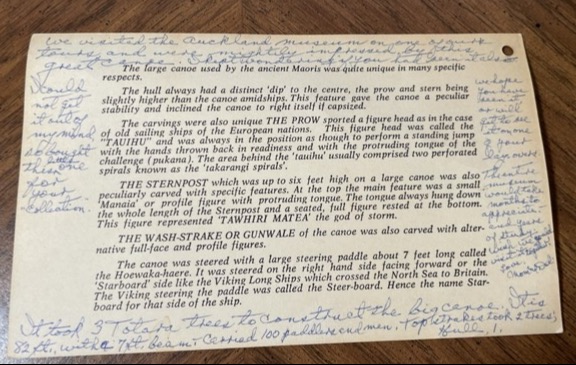 We visited the Auckland museum on one of our
tours and were mightily impressed by this
great canoe. I kept wondering if you had seen it also
The large canoe used by the ancient Maoris was quite unique in many specific
respects.
The hull always had a distinct 'dip' to the centre, the prow and stern being
slightly higher than the canoe amidships. This feature gave the canoe a peculiar
stability and inclined the canoe to right itself if capsized.
The carvings were also unique THE PROW sported a figure head as in the case
of old sailing ships of the European nations. This figure head was called the
"TAUIHU" and was always in the position as though to perform a standing jump
with the hands thrown back in readiness and with the protruding tongue of the
challenge (pukana). The area behind the 'tauihu' usually comprised two perforated
spirals known as the 'takarangi spirals'.
THE STERNPOST which was up to six feet high on a large canoe was also
peculiarly carved with specific features. At the top the main feature was a small
'Manaia' or profile figure with protruding tongue. The tongue always hung down
the whole length of the Sternpost and a seated, full figure rested at the bottom.
This figure represented 'TAWHIRI MATEA' the god of storm.
THE WASH-STRAKE OR GUNWALE of the canoe was also carved with alter-
native full-face and profile figures.
The canoe was steered with a large steering paddle about 7 feet long called
the Hoewaka-haere. It was steered on the right hand side facing forward or the
'Starboard' side like the Viking Long Ships which crossed the North Sea to Britain.
The Viking steering the paddle was called the Steer-board. Hence the name Star-
board for that side of the ship.
I could
not get
it out of
my mind
so bought
these
for
your
collection.
we hope
you have
seen it
or will
get to see
it on one
of your
layovers.
museum
would take
months to
appreciate
and years
of study
It took 3 Totara trees to construct the big canoe. It is
82 ft., with a 7 ft beam. Carried 100 paddlers and men. Top strakes took 2 trees,
hull, 1.